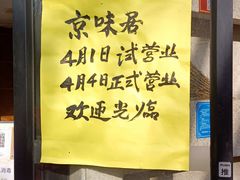 京味居
4月1日试营业
4月4日正式营业
欢迎光临
推